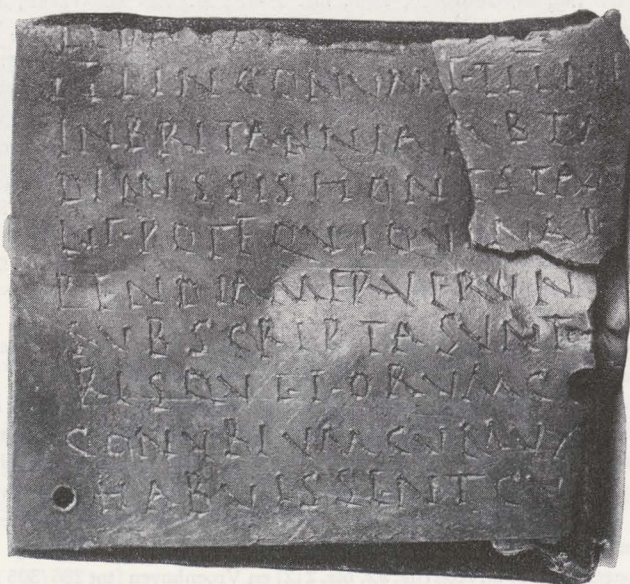 ET I LINCONVM·ET II LIN
IN BRITANNIA SVB TA
DIMISSIS HONESTA
NE·POTE QVI QVINA E
PENDIA MERVERVN
SVBSCRIPTA SVNT
RISQVE EORVM C
CONVBIVM CVM VX
HABVISSENT CV